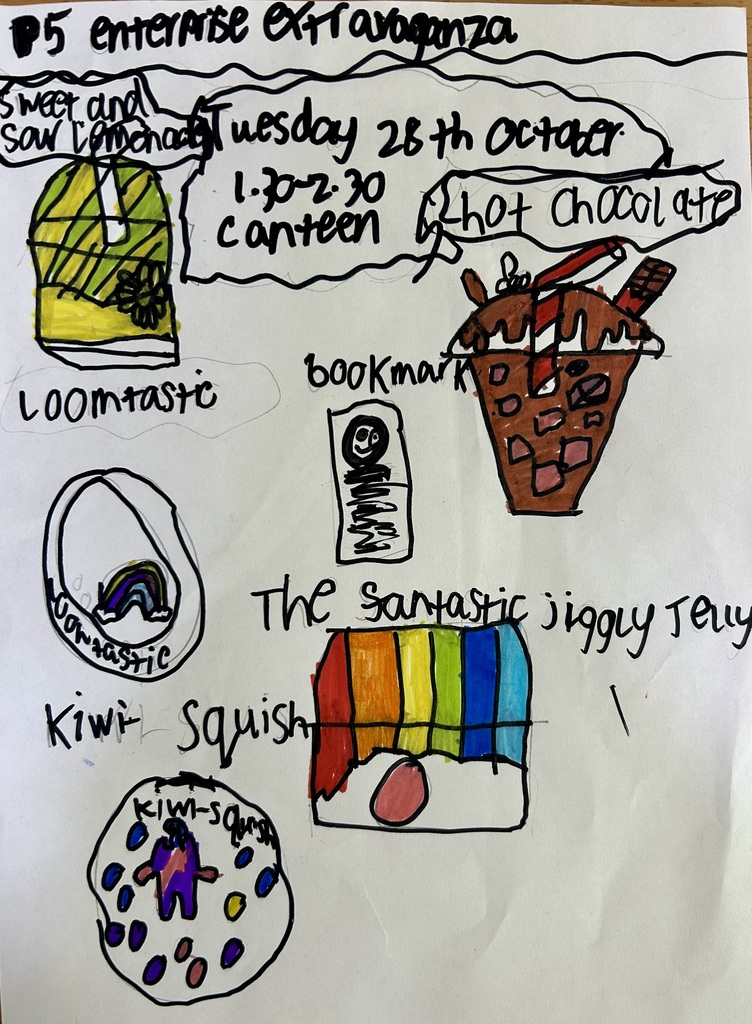 P5 enterprise extravaganza
Sweet and
sour lemonade
Tuesday 28th October
1.30-2.30
canteen
hot chocolate
Loomtastic
bookmark
Loomtastic
The fantastic jiggly Jelly
Kiwi- Squish
Kiwi-squish